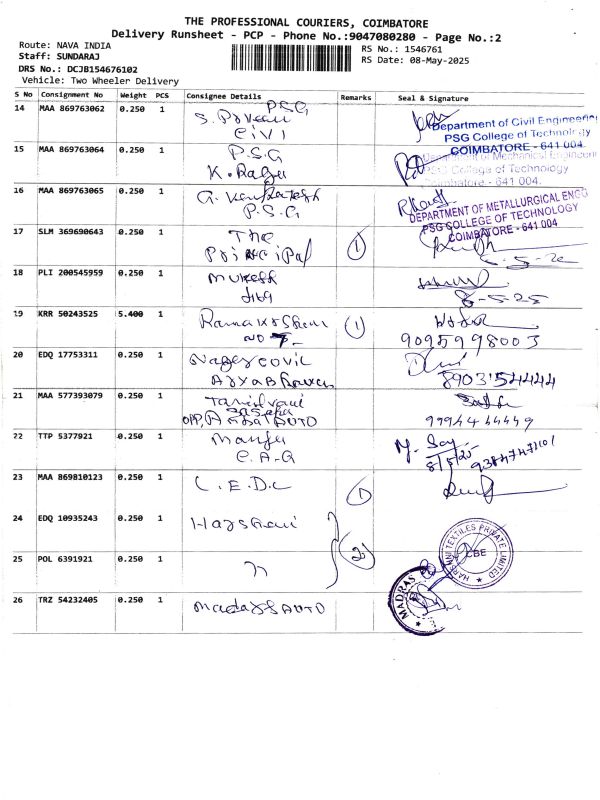 THE PROFESSIONAL COURIERS, COIMBATORE
Delivery Runsheet - PCP - Phone No.:9047080280 - Page No.:2
Route: NAVA INDIA
RS No.: 1546761
Staff: SUNDARAJ
RS Date: 08-May-2025
DRS No.: DCJB154676102
Vehicle: Two Wheeler Delivery
S No Consignment No Weight PCS Consignee Details Remarks Seal & Signature
14 MAA 869763062 0.250 1 PSG
CIVI
Department of Civil Engineering
PSG College of Technology
COIMBATORE - 641 004.
15 MAA 869763064 0.250 1 P.S.G
K. Raja
Department of Mechanical Engineering
PSG College of Technology
Coimbatore - 641 004.
16 MAA 869763065 0.250 1 G. Venkatesh
P.S.G
DEPARTMENT OF METALLURGICAL ENGG
PSG COLLEGE OF TECHNOLOGY
COIMBATORE - 641 004
17 SLM 369690643 0.250 1 The
Principal 1
18 PLI 200545959 0.250 1 Mukesh
8-5-25
19 KRR 50243525 5.400 1 1
9095998003
20 EDQ 17753311 0.250 1
8903154444
21 MAA 577393079 0.250 1
AUTO
9994444449
22 TTP 5377921 0.250 1 Manju
C.A.G
8/5/25
23 MAA 869810123 0.250 1 L.E.D.C 1
24 EDQ 10935243 0.250 1 Harshini
2
HARSHNI TEXTILES PRIVATE LIMITED
CBE
25 POL 6391921 0.250 1 "
26 TRZ 54232405 0.250 1 Madras AUTO
MADRAS